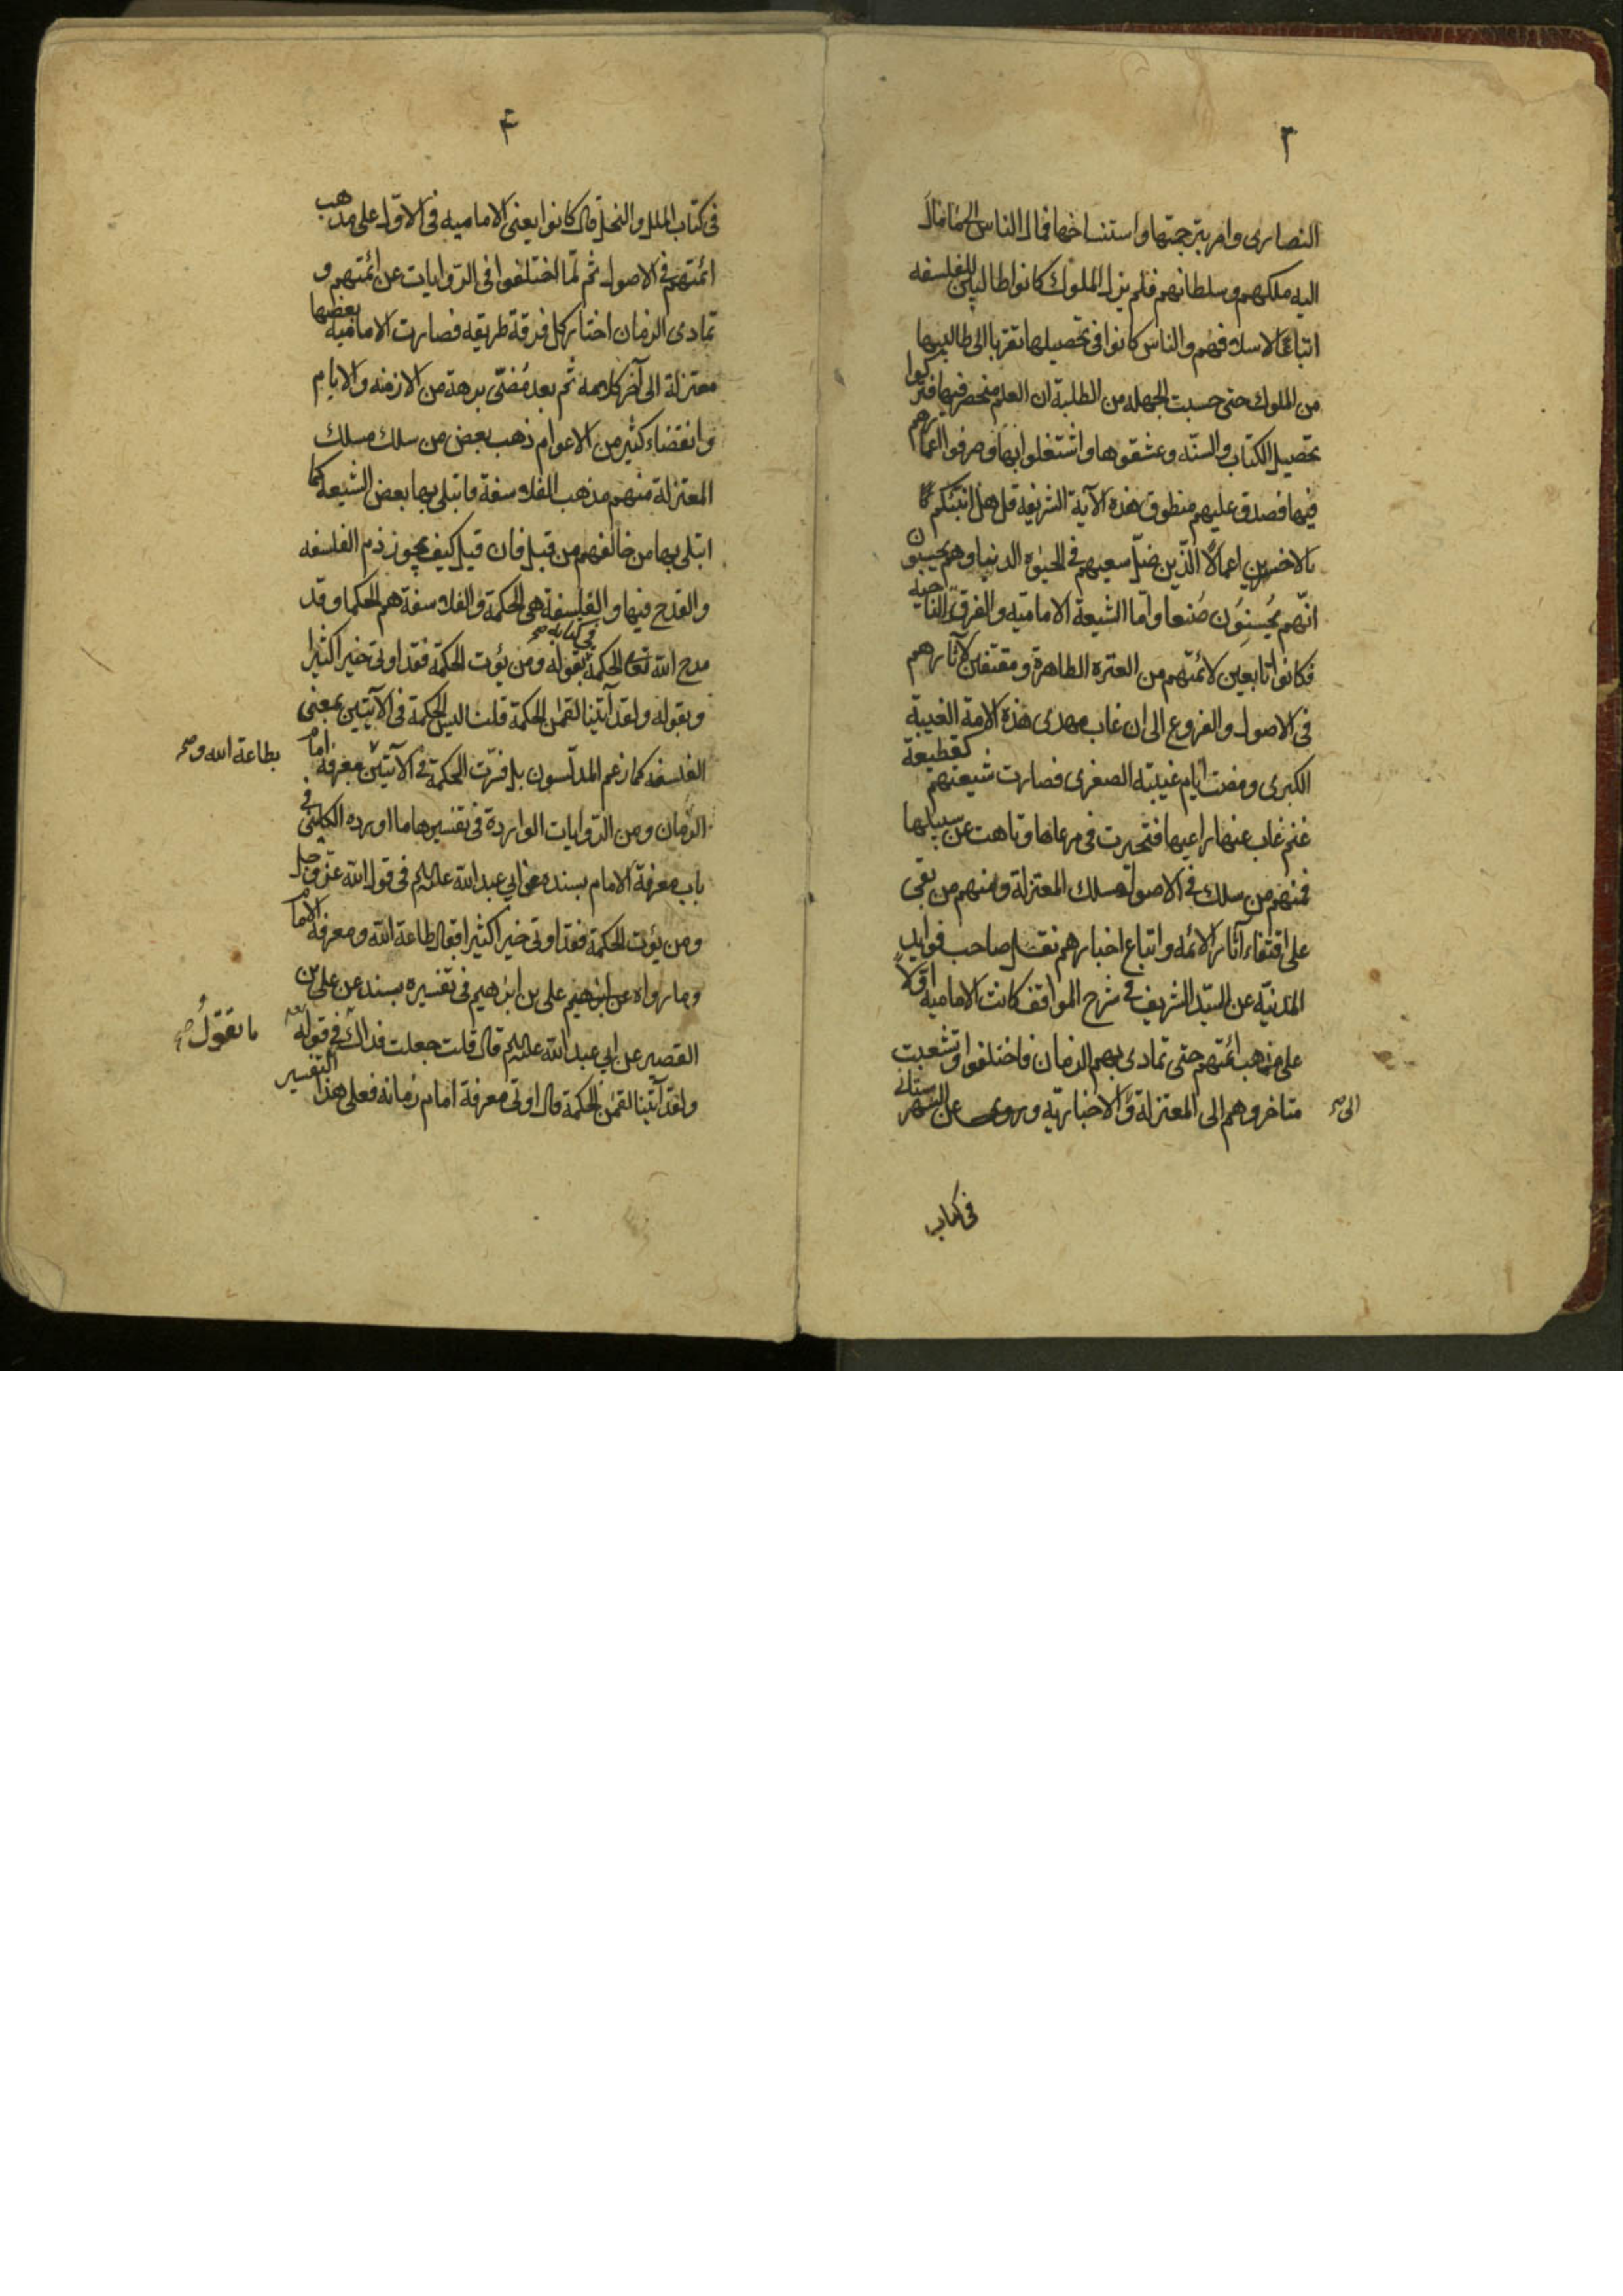 ٣
النصارى وامر بترجمتها واستنساخها فمال الناس الى ما مال
اليه ملكهم وسلطانهم فلم يزل الملوك كانوا طالبين للفلسفه
اتباعا لاسلافهم والناس كانوا في تحصيلها تقربا الى طالبيها
من الملوك حتى حسبت الجهله من الطلبة ان العلم منحصر فيها فتركوا
تحصيل الكتاب والسنّه وعشقوها واشتغلوا بها وصرفوا اعمارهم
فيها فصدق عليهم منطوق هذه الآية الشريفة قل هل انبئكم
بالاخسرين اعمالا الّذين ضلّ سعيهم في الحيوة الدنيا وهم يحسبون
انّهم يُحسِنُون صُنعا وامّا الشيعة الاماميّه والفرقة الناجيه
فكانوا تابعين لائمّتهم من العترة الطاهرة ومقتفين لآثارهم
في الاصول والفروع الى ان غاب مهدى هذه الامة الغيبة
الكبرى ومضت ايام غيبته الصغرى فصارت شيعتهم كقطيعة
غنم غاب عنها راعيها فتحيرت في مرعاها وتاهت عن سبيلها
فمنهم من سلك في الاصول مسلك المعتزلة ومنهم من بقى
على اقتفاء آثار الائمه واتباع اخبارهم نقل صاحب فوايد
المدنيّه عن السيّد الشريف في شرح المواقف كانت الامامية اوّلا
على مذهب ائمّتهم حتى تمادى بهم الزمان فاختلفوا وتشعبت
متاخروهم الى المعتزلة والى الاخباريّه وروى عن الشهرستانى
الى صح
في كتاب
۴
في كتاب الملل والنحل قال كانوا يعنى الاماميه في الاوّل على مذهب
ائمّتهم في الاصول ثم لمّا اختلفوا في الرّوايات عن ائمّتهم و
تمادى الزمان اختار كل فرقة طريقه فصارت الاماميه بعضها
معتزلة الى آخر كلامه ثم بعد مُضىّ برهة من الازمنه والايام
وانقضاء كثير من الاعوام ذهب بعض من سلك مسلك
المعتزلة منهم مذهب الفلاسفة فابتلى بها بعض الشيعه كما
ابتلى بها من خالفهم من قبل فان قيل كيف يجوز ذم الفلسفه
والقدح فيها والفلسفة هى الحكمة والفلاسفة هم الحكما وقد
مدح الله تعالى الحكمة في كتابه صح بقوله ومن يؤت الحكمة فقد اوتى خيرا كثيرا
وبقوله ولقد آتينا لقمن الحكمة قلت ليس الحكمة في الآيتين بمعنى
الفلسفه كما زعم المدلّسون بل فسّرت الحكمة في الآيتين بمعرفة امام
بطاعة الله و صح
الزمان ومن الرّوايات الواردة في تفسيرها ما اورده الكلينى في
باب معرفة الامام بسنده عن ابي عبد الله عليه السلم في قول الله عزّ وجل
ومن يؤت الحكمة فقد اوتى خيرا كثيرا فقال طاعة الله ومعرفة الامام
وما رواه علي بن ابرهيم في تفسيره بسند عن علي بن
القصير عن ابي عبد الله عليه السلم قال قلت جعلت فداك في قوله
ما تقولُ صح
ولقد آتينا لقمن الحكمة قال اوتى معرفة امام زمانه فعلى هذا التفسير